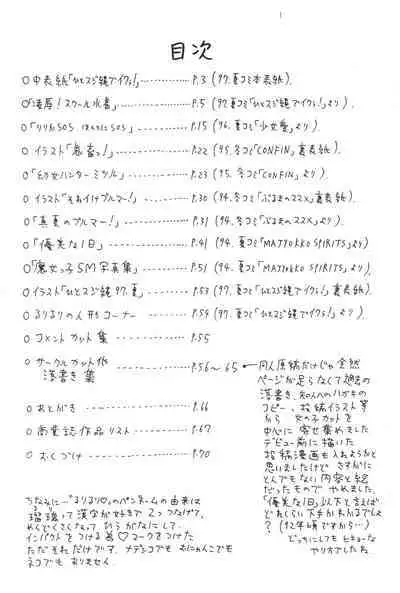 目次
○中表紙「ひとスジ縄でイクう!」‥‥‥ P.3 (97.夏コミ本表紙)
○「濃厚!スクール水着」‥‥‥ P.5 (97.夏コミ「ひとスジ縄でイクう!」より)
SOS ‥‥‥ P.15 (96.夏コミ「少女愛」より)
○イラスト ‥‥‥ P.22 (95.冬コミ「CONFIN」裏表紙)
‥‥‥ P.23 (95.冬コミ「CONFIN」より)
○イラスト「それイけブルマー!」‥‥‥ P.30 (94.冬コミ「ぶるまのススメ」裏表紙)
○「真夏のブルマー!」‥‥‥ P.31 (94.冬コミ「ぶるまのススメ」より)
○「優美な1日」‥‥‥ P.41 (94.夏コミ「MAJYOKKO SPIRITS」より)
○「魔女っ子SM写真集」‥‥‥ P.51 (94.夏コミ「MAJYOKKO SPIRITS」より)
○イラスト「ひとスジ縄97.夏」‥‥‥ P.53 (97.夏コミ「ひとスジ縄でイクう!」裏表紙)
○るりるりの人形コーナー ‥‥‥ P.54 (97.夏コミ「ひとスジ縄でイクう!」より)
○コメントカット集 ‥‥‥ P.55
○サークルカット他
落書き集 ‥‥‥ P.56~65
○あとがき ‥‥‥ P.66
○商業誌作品リスト ‥‥‥ P.67
○おくづけ ‥‥‥ P.70
同人原稿だけじゃ全然
ページが足らなくて過去の
落書き、知人へのハガキの
コピー、投稿イラスト等
から 女の子カットを
中心に寄せ集めました
デビュー前に描いた
投稿漫画も入れようかと
思いましたけど さすがに
とんでもない内容と絵
だったもので やめました。
「優美な1日」以下と言えば
どれくらい下手かわかるでしょ
? (92年頃ですから…)
どっちにしても ヒキョーな
やり方でしたね
ちなみに…“るりるり♡”のペンネームの由来は
瑠璃って漢字が好きで 2つつなげて、
めんどくさくなって、ひらがなにして、
インパクトをつける為♡マークをつけた
ただそれだけです。ナデシコでも おにゃんこでも
ネコでも ありません。